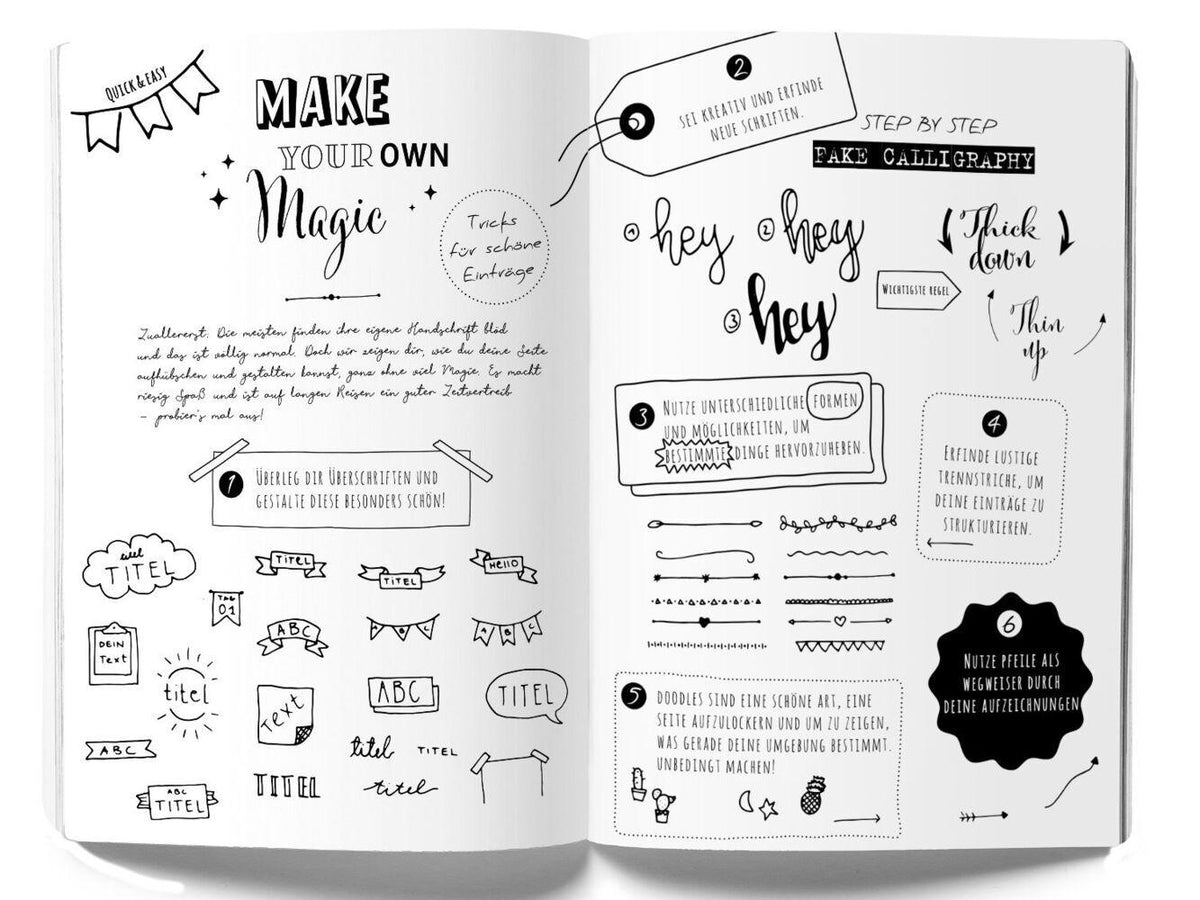 QUICK & EASY
MAKE
YOUR OWN
Magic
Tricks
für schöne
Einträge
Zuallererst: Die meisten finden ihre eigene Handschrift blöd
und das ist völlig normal. Doch wir zeigen dir, wie du deine Seite
aufhübschen und gestalten kannst, ganz ohne viel Magie. Es macht
riesig Spaß und ist auf langen Reisen ein guter Zeitvertreib
– probier's mal aus!
1
ÜBERLEG DIR ÜBERSCHRIFTEN UND
GESTALTE DIESE BESONDERS SCHÖN!
TITEL
TITEL
TITEL
HELLO
TAG
01
ABC
A B C
A B C
DEIN
Text
titel
Text
ABC
TITEL
ABC
titel
TITEL
ABC
TITEL
TITEL
titel
2
SEI KREATIV UND ERFINDE
NEUE SCHRIFTEN.
STEP BY STEP
FAKE CALLIGRAPHY
1 hey
2 hey
3 hey
Thick
down
WICHTIGSTE REGEL
Thin
up
3
NUTZE UNTERSCHIEDLICHE FORMEN
UND MÖGLICHKEITEN, UM
BESTIMMTE DINGE HERVORZUHEBEN.
4
ERFINDE LUSTIGE
TRENNSTRICHE, UM
DEINE EINTRÄGE ZU
STRUKTURIEREN.
5
DOODLES SIND EINE SCHÖNE ART, EINE
SEITE AUFZULOCKERN UND UM ZU ZEIGEN,
WAS GERADE DEINE UMGEBUNG BESTIMMT.
UNBEDINGT MACHEN!
6
NUTZE PFEILE ALS
WEGWEISER DURCH
DEINE AUFZEICHNUNGEN